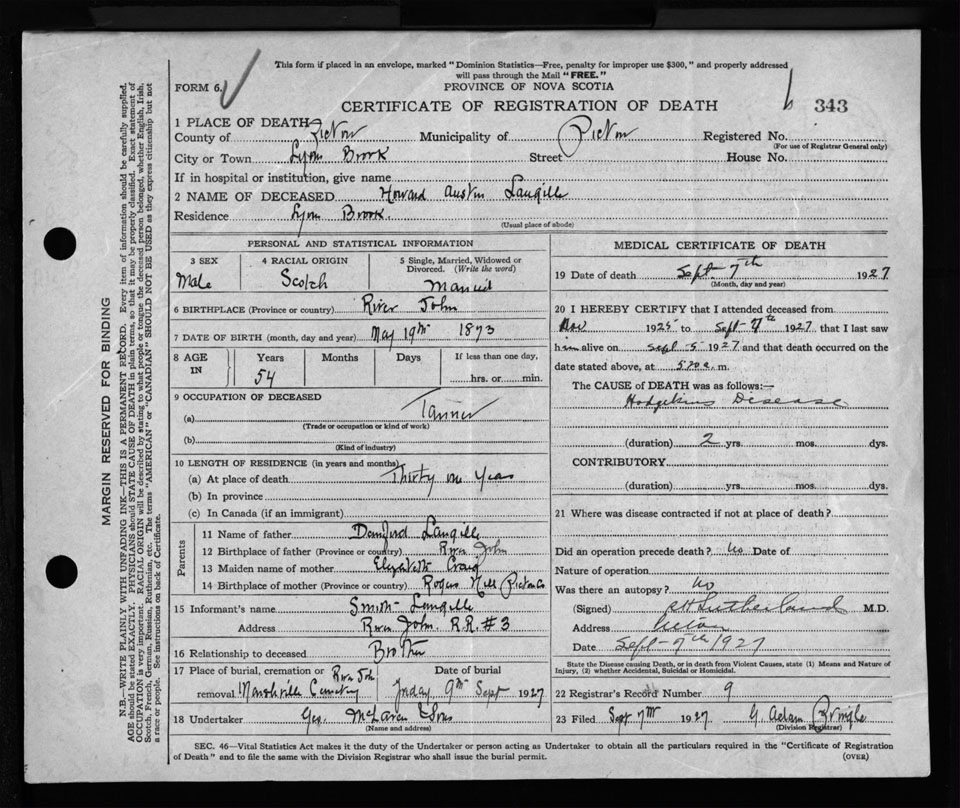 This form if placed in an envelope, marked "Dominion Statistics—Free, penalty for improper use $300," and properly addressed
will pass through the Mail "FREE."
FORM 6.
PROVINCE OF NOVA SCOTIA
CERTIFICATE OF REGISTRATION OF DEATH
343
1 PLACE OF DEATH
County of Pictou Municipality of Pictou Registered No.
(For use of Registrar General only)
City or Town Lyon Brook Street House No.
If in hospital or institution, give name
2 NAME OF DECEASED Howard Austin Langille
Residence Lyon Brook
(Usual place of abode)
PERSONAL AND STATISTICAL INFORMATION
3 SEX 4 RACIAL ORIGIN 5 Single, Married, Widowed or
Divorced. (Write the word)
Male Scotch Married
6 BIRTHPLACE (Province or country) River John
7 DATE OF BIRTH (month, day and year) May 19th 1873
8 AGE IN Years Months Days If less than one day,
54 hrs. or min.
9 OCCUPATION OF DECEASED
(a) Tanner
(Trade or occupation or kind of work)
(b)
(Kind of industry)
10 LENGTH OF RESIDENCE (in years and months)
(a) At place of death Thirty one Years
(b) In province
(c) In Canada (if an immigrant)
Parents
11 Name of father Langille
12 Birthplace of father (Province or country) River John
13 Maiden name of mother Elizabeth Craig
14 Birthplace of mother (Province or country) Rogers Hill Pictou Co
15 Informant's name Smith Langille
Address River John. R.R. #3
16 Relationship to deceased Brother
17 Place of burial, cremation or River John Date of burial
removal Marshville Cemetery Friday 9th Sept 1927
18 Undertaker Geo. McLaren & Sons
(Name and address)
MEDICAL CERTIFICATE OF DEATH
19 Date of death Sept 7th 1927
(Month, day and year)
20 I HEREBY CERTIFY that I attended deceased from
1925 to Sept 7th 1927 that I last saw
him alive on Sept 5 1927 and that death occurred on the
date stated above, at m.
The CAUSE of DEATH was as follows:—
Hodgekins Desease
(duration) 2 yrs. mos. dys.
CONTRIBUTORY
(duration) yrs. mos. dys.
21 Where was disease contracted if not at place of death?
Did an operation precede death? No Date of
Nature of operation
Was there an autopsy? No
(Signed) Sutherland M.D.
Address Pictou
Date Sept 7th 1927
State the Disease causing Death, or in death from Violent Causes, state (1) Means and Nature of
Injury, (2) whether Accidental, Suicidal or Homicidal.
22 Registrar's Record Number 9
23 Filed Sept 7th 1927 G. Adam Pringle
(Division Registrar)
SEC. 46—Vital Statistics Act makes it the duty of the Undertaker or person acting as Undertaker to obtain all the particulars required in the "Certificate of Registration
of Death" and to file the same with the Division Registrar who shall issue the burial permit. (OVER)
MARGIN RESERVED FOR BINDING
N.B.—WRITE PLAINLY WITH UNFADING INK—THIS IS A PERMANENT RECORD. Every item of information should be carefully supplied.
AGE should be stated EXACTLY. PHYSICIANS should STATE CAUSE OF DEATH in plain terms, so that it may be properly classified. Exact statement of
OCCUPATION is very important. RACIAL ORIGIN will be described by stating to what people or tongue the deceased person belonged, whether English, Irish,
Scotch, French, German, Russian, Ruthenian, etc. The terms "AMERICAN" or "CANADIAN" SHOULD NOT BE USED as they express citizenship but not
a race or people. See instructions on back of Certificate.